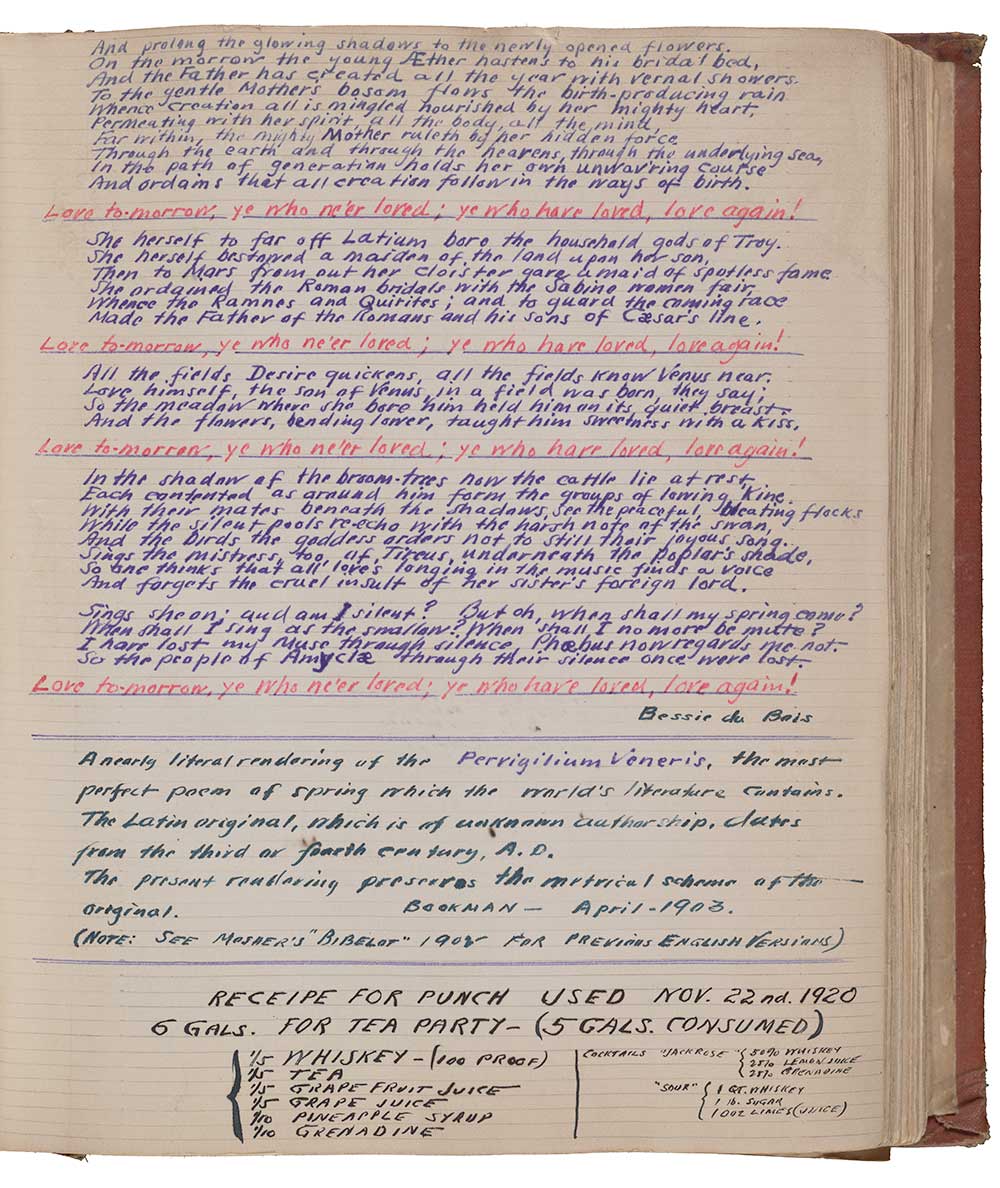 And prolong the glowing shadows to the newly opened flowers.
On the morrow the young Æther hastens to his bridal bed,
And the Father has created all the year with vernal showers.
To the gentle Mother's bosom flows the birth-producing rain
Whence creation all is mingled nourished by her mighty heart,
Permeating with her spirit, all the body, all the mind,
Far within, the mighty Mother ruleth by her hidden force
Through the earth and through the heavens, through the underlying sea,
In the path of generation holds her own unwavring course
And ordains that all creation follow in the ways of birth.
Love to-morrow, ye who ne'er loved; ye who have loved, love again!
She herself to far off Latium bore the household gods of Troy.
She herself bestowed a maiden of the land upon her son,
Then to Mars from out her cloister gave a maid of spotless fame
She ordained the Roman bridals with the Sabine women fair,
Whence the Ramnes and Quirites; and to guard the coming race
Made the Father of the Romans and his sons of Cæsar's line.
Love to-morrow, ye who ne'er loved; ye who have loved, love again!
All the fields Desire quickens, all the fields know Venus near.
Love himself, the son of Venus, in a field was born, they say;
So the meadow where she bore him held him on its quiet breast
And the flowers, bending lower, taught him sweetness with a kiss.
Love to-morrow, ye who ne'er loved; ye who have loved, love again!
In the shadow of the broom-trees now the cattle lie at rest
Each contented as around him form the groups of lowing kine.
With their mates beneath the shadows, see the peaceful, bleating flocks
While the silent pools re-echo with the harsh note of the swan,
And the birds the goddess orders not to still their joyous song.
Sings the mistress, too, of Tireus, underneath the poplar's shade,
So one thinks that all love's longing in the music finds a voice
And forgets the cruel insult of her sister's foreign lord.
Sings she on; and am I silent? But oh, when shall my spring come?
When shall I sing as the swallow? When shall I no more be mute?
I have lost my Muse through silence, Phœbus now regards me not.
So the people of Amyclæ through their silence once were lost.
Love to-morrow, ye who ne'er loved; ye who have loved, love again!
Bessie du Bois
A nearly literal rendering of the Pervigilium Veneris, the most
perfect poem of spring which the world's literature contains.
The Latin original, which is of unknown authorship, dates
from the third or fourth century, A.D.
The present rendering preserves the metrical scheme of the
original. BOOKMAN — April-1903.
(NOTE: SEE MOSHER'S "BIBELOT" FOR PREVIOUS ENGLISH VERSIONS)
RECEIPE FOR PUNCH USED NOV. 22nd. 1920
6 GALS. FOR TEA PARTY- (5 GALS. CONSUMED)
1/5 WHISKEY - (100 PROOF)
1/5 TEA
1/5 GRAPE FRUIT JUICE
1/5 GRAPE JUICE
1/10 PINEAPPLE SYRUP
1/10 GRENADINE
COCKTAILS "JACKROSE" 50% WHISKEY
25% LEMON JUICE
25% GRENADINE
"SOUR" 1 QT. WHISKEY
1 lb. SUGAR
10 OZ LIMES (JUICE)